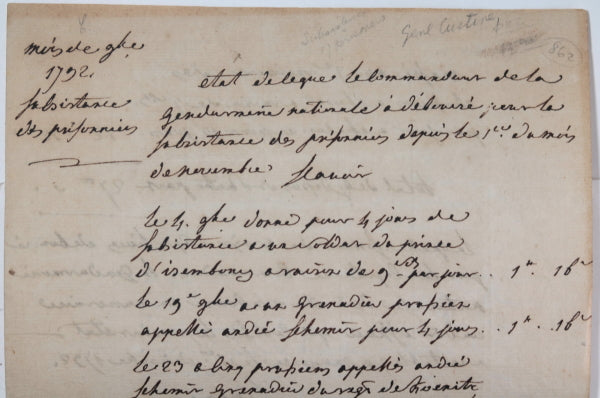 Genl Custine
862
mois de 9bre
1792.
subsistance
des prisonniers
état de ce que le Commandant de la
Gendarmerie nationale a débourcé pour la
subsistance des prisonniers depuis le 1er du mois
de novembre Scavoir
le 4. 9bre donné pour 4 jours de
subsistance a un soldat du prince
d'isembourg a raison de 9 s par jour.. 1tt. 16s
le 19e 9bre a un Grenadier prussien
appellé andré schemir pour 4 jours.. 1tt. 16s
le 23 a cinq prussiens appellés andré
schemir Grenadier du regt de